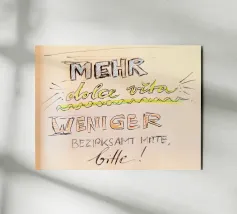 MEHR
dolce vita
WENIGER
BEZIRKSAMT MITTE,
bitte!